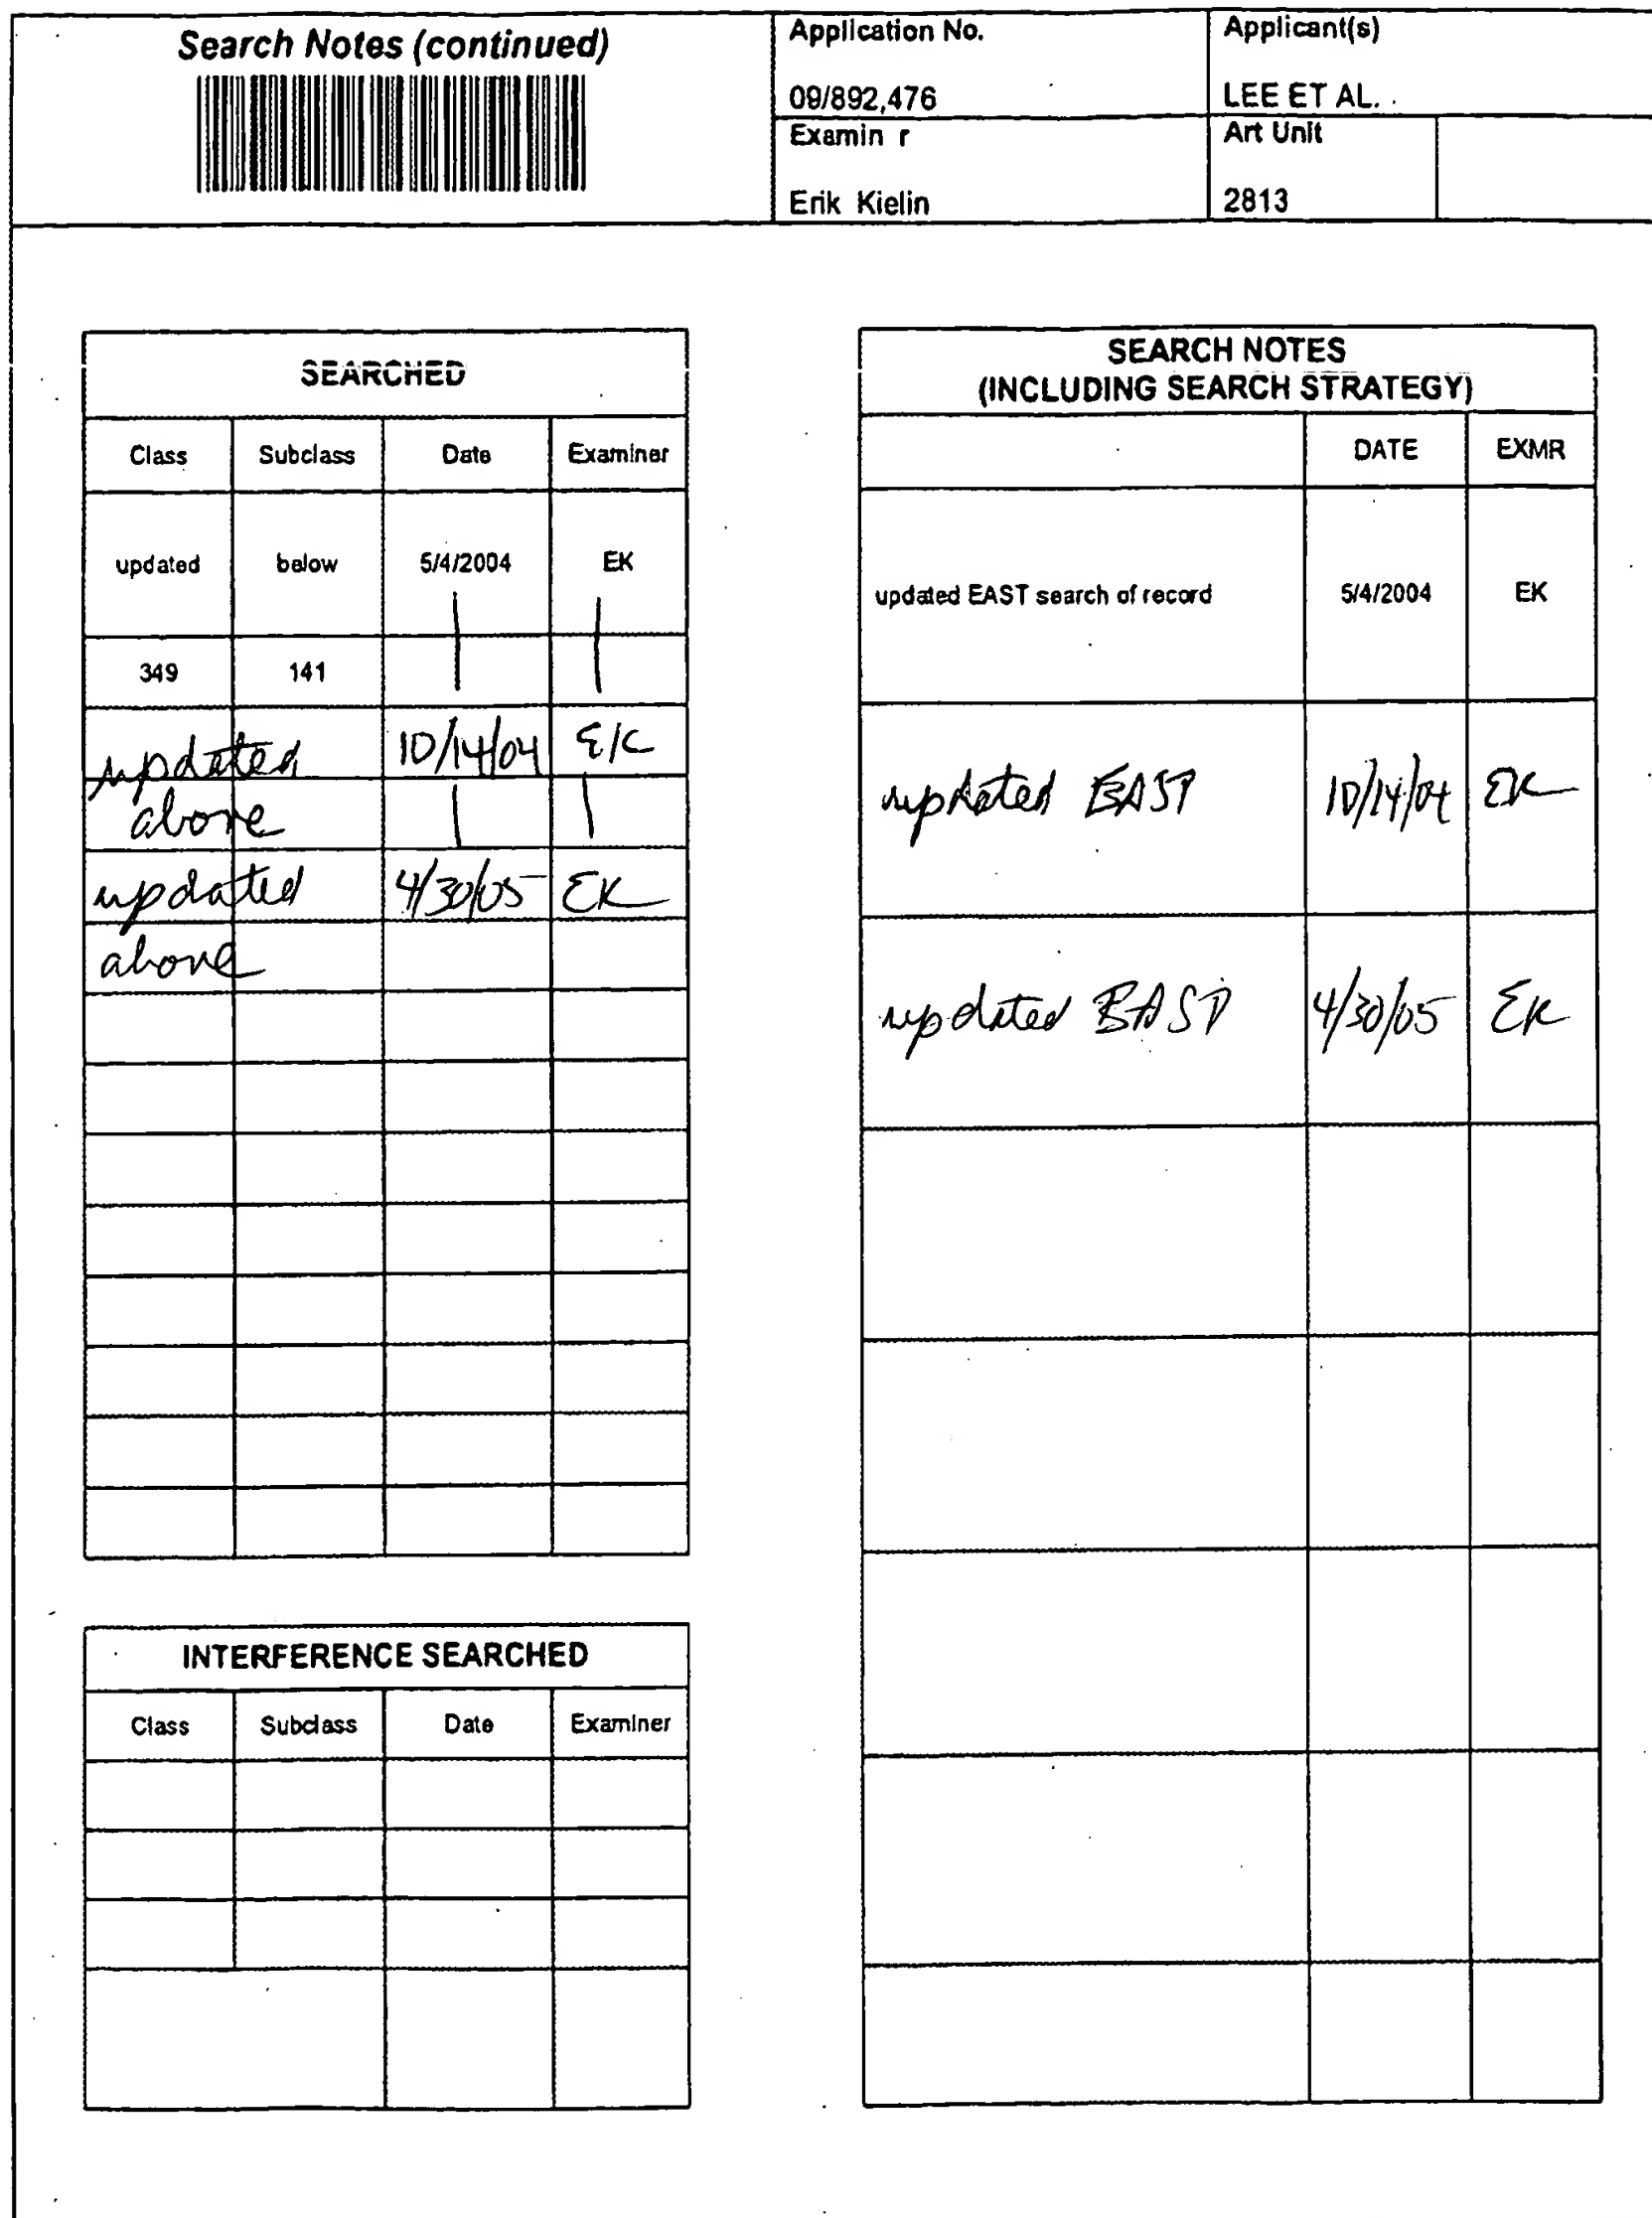 Search Notes (continued)
Application No.
09/892,476
Applicant(s)
LEE ET AL.
Examin r
Erik Kielin
Art Unit
2813
SEARCHED
Class Subclass Date Examiner
updated below 5/4/2004 EK
349 141
updated 10/14/04 EK
above
updated 4/30/05 EK
above
INTERFERENCE SEARCHED
Class Subclass Date Examiner
SEARCH NOTES
(INCLUDING SEARCH STRATEGY)
DATE EXMR
updated EAST search of record 5/4/2004 EK
updated EAST 10/14/04 EK
updated EAST 4/30/05 EK